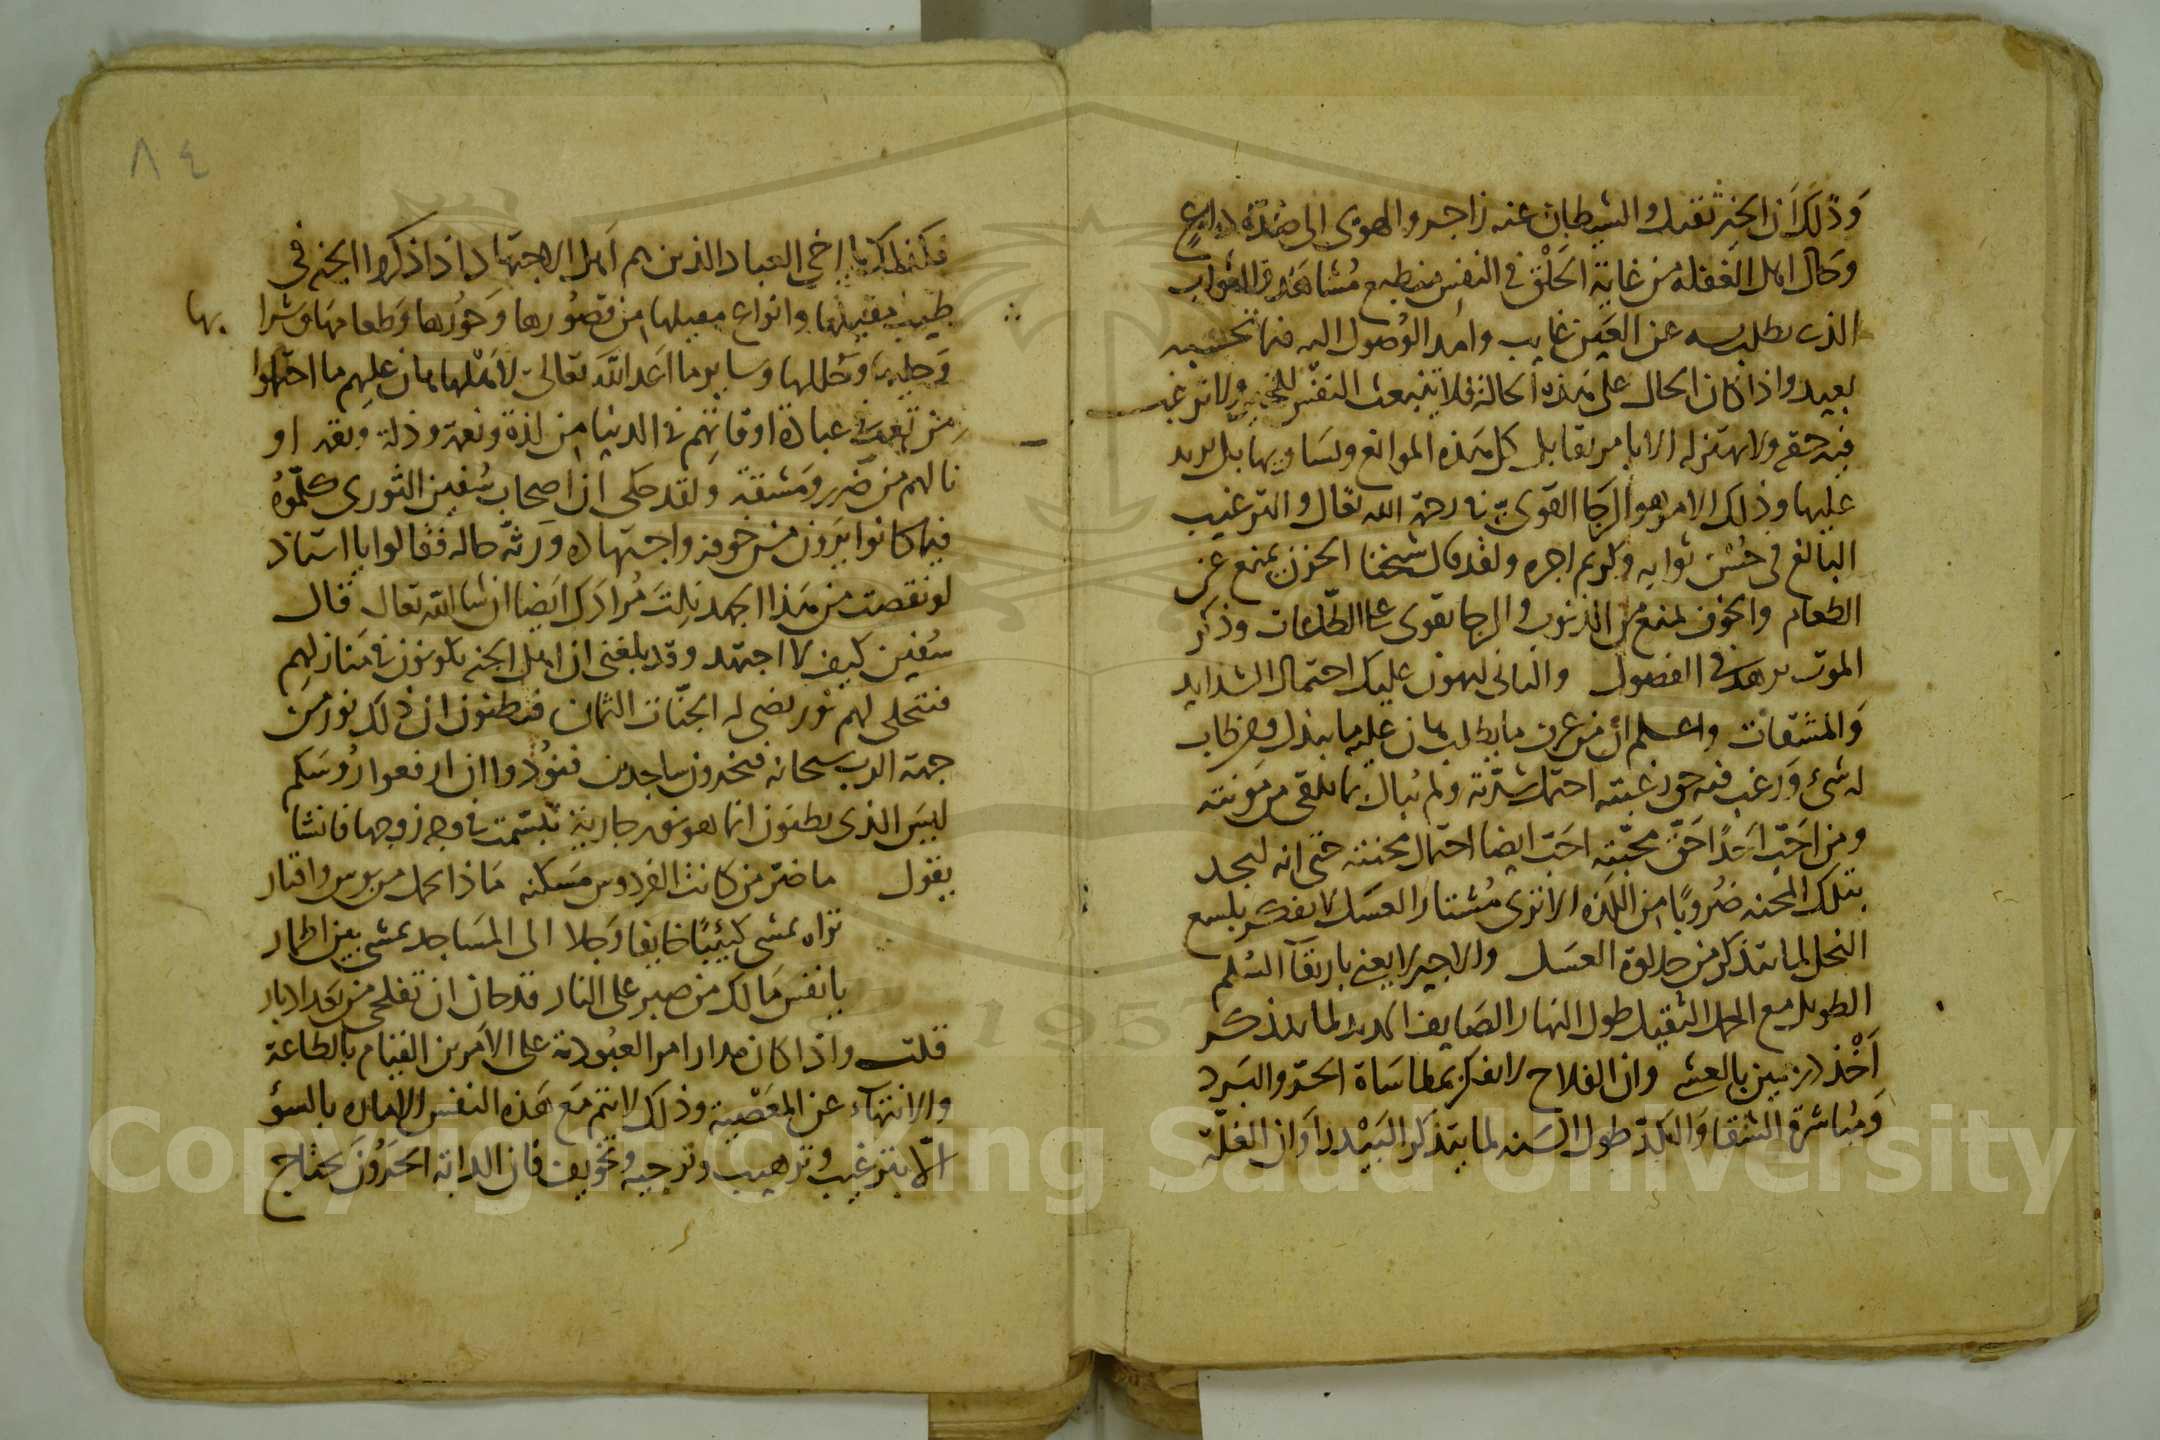 وَذلكَ اَن الخير ثقيل والشيطان عنه زاجر والهوى الى ضدّه داعٍ
وحال اهل الغفلة من غاية الخلْق في النفس منطبع مُشاهَد والثواب
الذى يطلب عن العين غايب وامد الوُصول اليه فيما تحسبه
بعيد واذا كان الحال على هذه الحالة فلا تنبعث النفس للخير ولا ترغب
فيه حقه ولا تهتز له الا بامر يقابل كل هذه الموانع ويساويها بل يزيد
عليها وذلك الامر هو الرجا القوى في رحمة الله تعالى والترغيب
البالغ في حُسْن ثوابه وكريم اجره ولقد قال شيخنا الحزن يمنع عن
الطعام والخوف يمنع من الذنوب والرجا يقوى على الطاعات وذكر
الموت يزهد في الفضول والثانى ليهون عليك احتمال الشدايد
وَالمشقات واعلم ان من عرف ما يطلب هان عليه ما يبذل ومن طاب
له شئ وَرغب فيه حق رغبته احتمل شدّته ولم يُبال بما يلقى من مؤنته
ومن احَبّ احَدًا حَقّ محبّته احَبّ ايضا احتمال محنته حتى انه ليجد
بتلك المحنه ضُروبًا من اللّذه الا ترى مُشتار العسَل لا يفكر بلسع
النحل لما يتذكر من حلاوة العسَل والاجير لا يعبى بارتقآ السُلم
الطويل مع الحمل الثقيل طول النهار الصَايف المديد لما يتذكر
اَخْذ درهمين بالعشى وان الفلاح لا يفكر بمقاساة الحَرّ والبَرد
وَمُباشرة الشقا وَالكدّ طول السَنه لما يتذكر البَيْدر اَوان الغلّة
٨٤
فكذلك يا اخي العباد الذين هم اَهل الاجتهاد اذا ذكروا الجنه في
طيب مقيلها وانواع نعيمها من قصُورها وَحُورها وَطعامها وَشرا بها
وَحليها وَحُللها وَساير ما اعَد اللّه تعالى لاَهْلها هان عليهم ما احتملوا
من تعب في عبادة او فاتهم في الدنيا من لذة ونعمة وذلة ونقمه او
نالهم من ضَرر وَمشقة وَلقد حكى ان اصحاب سُفين الثورى كلّموهُ
فيما كانوا يَرَون من خوفه واجتهاده وَرثّه حاله فقالوا يا استاذ
لو نقصت من هَذا الجهد نلتَ مُرادَك اَيضا ان شا الله تعالى قال
سُفين كيف لا اجتهد وقد بلغنى ان اهل الجنه يكونون في مَنازلهم
فيتجلى لهم نُور تضى له الجنّات الثمان فيظنون ان ذلك نور من
جهة الرب سبحانه فيخرون ساجدين فنُودوا ان ارفعوا رُوسَكم
ليسَ الذى تظنون انما هو نور جارية تبَسّمت في وجه زوجها فانشا
يقول ما ضرّ من كانت الفردوس مَسكنه مَاذا تحمل من بوس واقتار
تراه يمشى كئيبًا خايفا وَجلا الى المسَاجد يمشى بين اطمار
يا نفس مَا لك من صبر على النار قد حان ان تفلحى من بَعد ادبار
قلت واذا كان مدار امر العبُودية على الاَمرين القيام بالطاعة
والانتهآء عن المعَصْية وذلك لا يتم مَع هَذه النفس الاماره بالسوء
الّا بترغيب وترهيب وترجيه وتخويف فان الدابة الحَرُون يحتاج
Copyright © King Saud University
1957